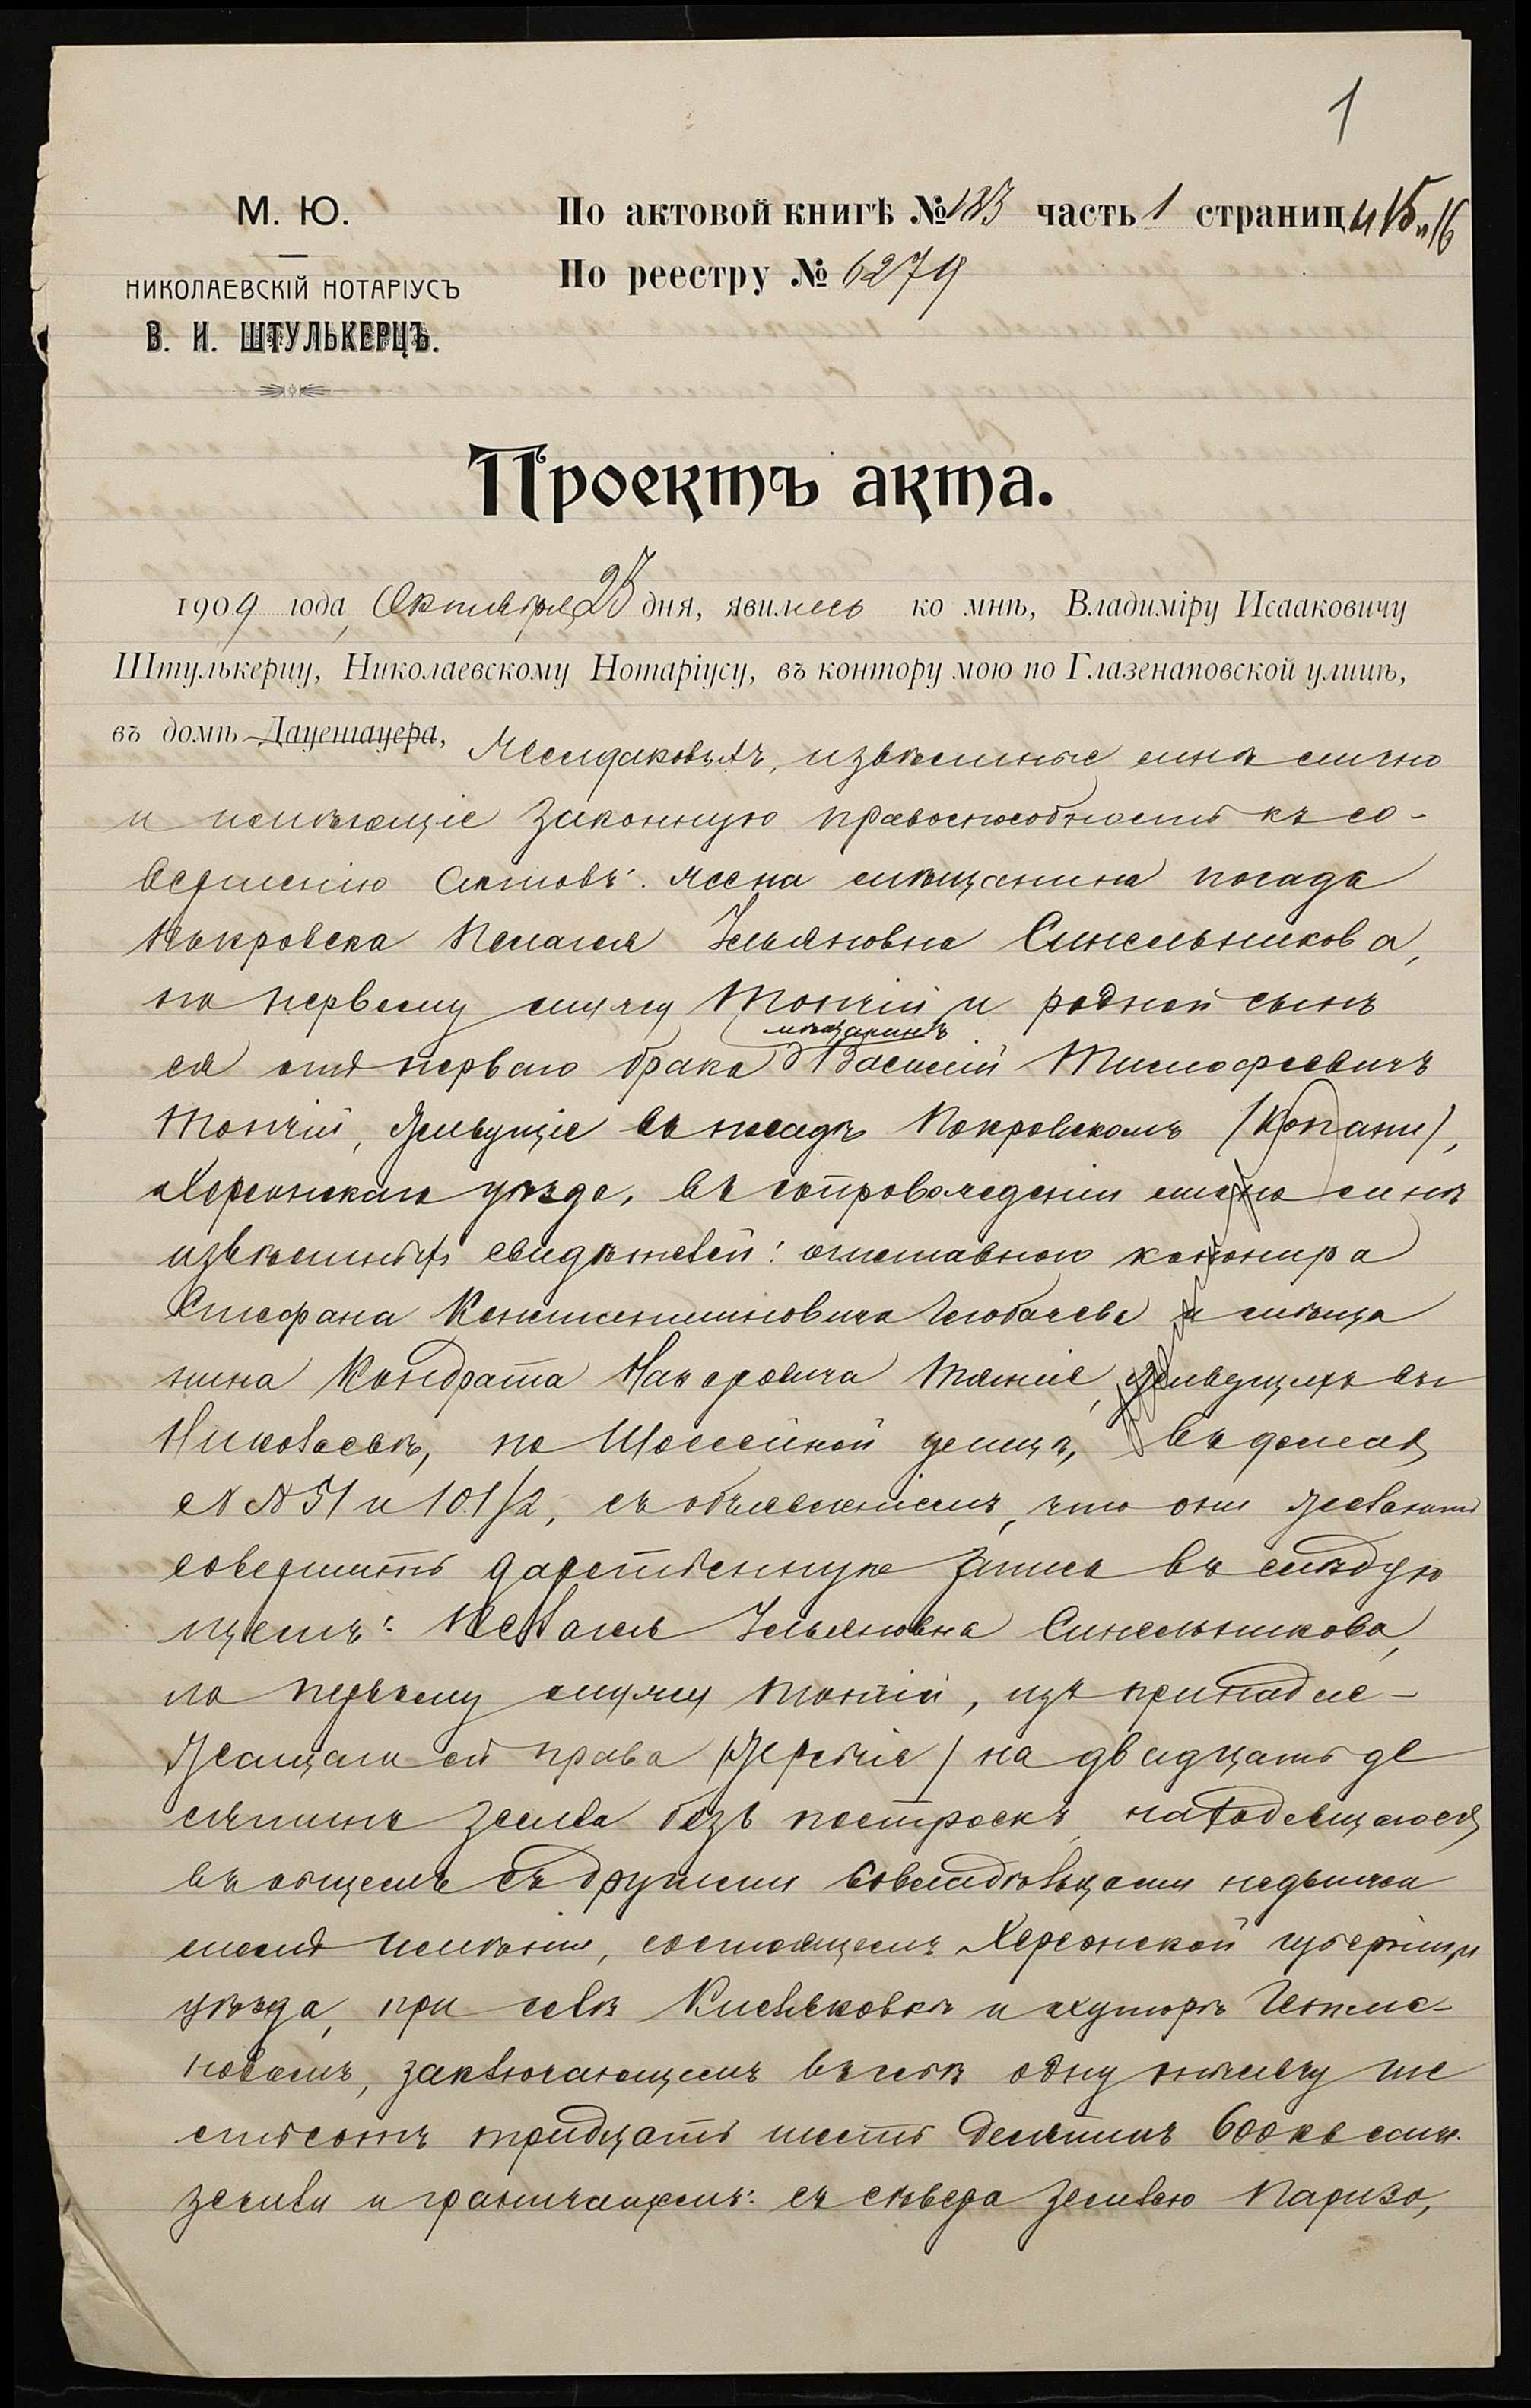 1
М. Ю.
НИКОЛАЕВСКІЙ НОТАРІУСЪ
В. И. ШТУЛЬКЕРЦЪ.
По актовой книгѣ № 183 часть 1 страницы 15 и 16
По реестру № 6279
Проектъ акта.
1909 года, Октября 25 дня, явились ко мнѣ, Владиміру Исааковичу
Штулькерцу, Николаевскому Нотаріусу, въ контору мою по Глазенаповской улицѣ,
въ домѣ Дауенгауера, извѣстные мнѣ лично
и имѣющіе законную правоспособность къ со-
вершенію актовъ: жена мѣщанина посада
Покровска Пелагея Ульяновна Синельникова,
по первому мужу Тончій и родной сынъ
мѣщанинъ
ея отъ перваго брака Василій Тимофеевичъ
Тончій, живущіе въ посадѣ Покровскомъ (Копани),
Херсонскаго уѣзда, въ сопровожденіи лично мнѣ
извѣстныхъ свидѣтелей: отставного канонира
Стефана Константиновича и мѣща
нина Кондрата живущихъ въ
Николаевѣ, по Шоссейной улицѣ, въ домахъ
№ № 51 и 101/2, съ объявленіемъ, что они желаютъ
совершить дарственную запись въ слѣдую
щемъ: Пелагея Ульяновна Синельникова,
по первому мужу Тончій, изъ принадле-
жащаго ей права (жребія) на двадцать де
сятинъ земли безъ построекъ, находящагося
въ общемъ съ другими совладѣльцами недвижи
момъ имѣніи, состоящемъ Херсонской губерніи и
уѣзда, при селѣ Кисляковкѣ и хуторѣ
заключающемъ въ себѣ одну тысячу ше
стьсотъ тридцать шесть десятинъ 600 кв саж.
земли и граничащемъ: съ сѣвера землею Паризо,